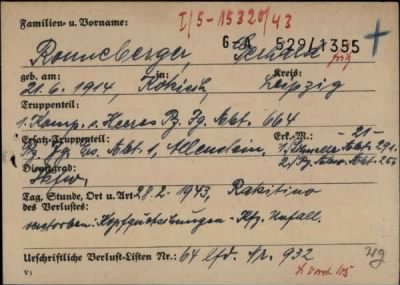 I/5-15320/43
Familien- u. Vorname:
GzA 529/1355
Ronneberger, Gerhard
geb. am: in: Kreis:
21.6.1914, Leipzig
Truppenteil:
1. Komp. s. Heeres Pz. Jg. Abt. 664
Ersatz-Truppenteil: Erk.-M.: -21-
Pz. Jg. Ers. Abt. 1, Allenstein,
Dienstgrad:
Tag, Stunde, Ort u. Art 28.2.1943, Rakitino
des Verlustes:
verstorben: Kopfquetschungen - Kfz. Unfall.
Urschriftliche Verlust-Listen Nr.: 64 lfd. Nr. 932
V1